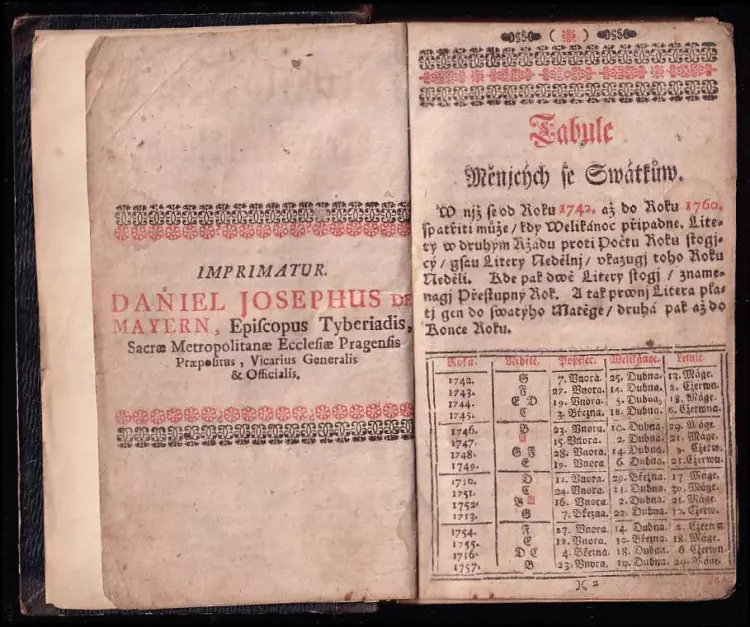 IMPRIMATUR.
DANIEL JOSEPHUS DE
MAYERN, Epiſcopus Tyberiadis,
Sacræ Metropolitanæ Eccleſiæ Pragenſis
Præpoſitus, Vicarius Generalis
& Officialis.
Tabule
Měnjcých ſe Swátkůw.
W njž ſe od Roku 1742. až do Roku 1760.
ſpatřiti může / kdy Welikánoc připadne. Lite-
ry w druhým Ržadu proti Počtu Roku ſtogj-
cý / gſau Litery Nedělnj / vkazugj toho Roku
Neděli. Kde pak dwě Litery ſtogj / zname-
nagj Přeſtupný Rok. A tak prwnj Litera pla-
tj gen do ſwatýho Matěge / druhá pak až do
Konce Roku.
Roku. Neděle. Popelec. Welikánoc. Letnic.
1742. G 7. Vnora. 25. Dubna. 13. Máge.
1743. F 27. Vnora. 14. Dubna. 2. Cžerwn.
1744. E D 19. Vnora. 5. Dubna, 18. Máge.
1745. C 3. Března. 18. Dubna. 6. Cžerwna.
1746. B 23. Vnora. 10. Dubna. 29. Máge.
1747. A 15. Vnora. 2. Dubna. 21. Máge.
1748. G F 28. Vnora. 14. Dubna. 2. Cžerw.
1749. E 19. Vnora. 6. Dubna. 21. Cžerwn.
1750. D 11. Vnora. 29. Března. 17 Máge.
1751. C 24. Vnora. 11. Dubna. 30. Máge.
1752. B A 16. Vnora. 2. Dubna. 21. Máge.
1753. G 7. Března. 22. Dubna. 10. Cžerw.
1754. F 27. Vnora. 14. Dubna. 2. Cžerwn
1755. E 12. Vnora. 30. Března. 18. Máge.
1756. D C 4. Března. 18. Dubna. 6 Cžerwn
1757. B 23. Vnora. 10. Dubna. 29. Máge.
)( 2